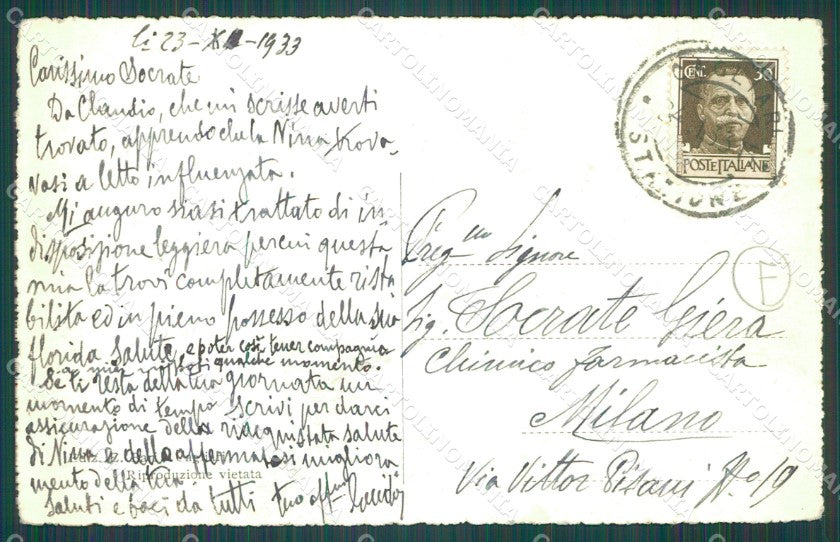 li 23-XI-1933
Carissimo Socrate
Da Claudio, che mi scrisse averti
trovato, apprendo che la Nina trova-
vasi a letto influenzata.
Mi auguro siasi trattato di in
disposizione leggiera per cui questa
mia la trovi completamente rista
bilita ed in pieno possesso della sua
florida salute, e poter così tener compagnia
qualche momento.
Se ti resta della tua giornata un
momento di tempo scrivi per darci
assicurazione della riacquistata salute
di Nina e dell'affermatosi migliora
mento della tua
Riproduzione vietata
Saluti e baci da tutti tuo aff
CENT. 30
POSTE ITALIANE
CAGLIARI
STAZIONE
Preg.mo Signore
Sig. Socrate Giera
Chimico farmacista
Milano
Via Vittor Pisani No 19
F
CARTOLINOMANIA